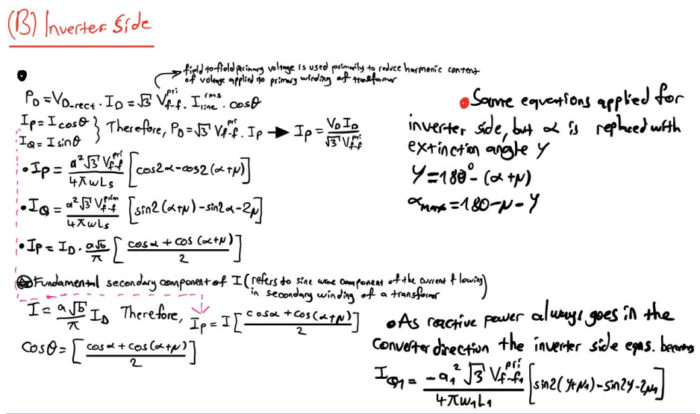 (B) Inverter Side
field-to-field primary voltage is used primarily to reduce harmonic content
of voltage applied to primary winding of transformer
P_D = V_D_rect · I_D = √3 V_f-f^pri · I_line^rms · cosθ
I_P = I cosθ
I_Q = I sinθ } Therefore, P_D = √3 V_f-f^pri · I_P → I_P = V_D I_D / √3 V_f-f^pri
• I_P = a²√3 V_f-f^pri / 4πωL_s [cos2α - cos2(α+μ)]
• I_Q = a²√3 V_f-f^prim / 4πωL_s [sin2(α+μ) - sin2α - 2μ]
• I_P = I_D · a√6 / π [cosα + cos(α+μ) / 2]
Fundamental secondary component of I (refers to sine wave component of the current flowing)
in secondary winding of a transformer
I = a√6 / π I_D Therefore, I_P = I [cosα + cos(α+μ) / 2]
cosθ = [cosα + cos(α+μ) / 2]
• Same equations applied for
inverter side, but α is replaced with
extinction angle γ
γ = 180° - (α+μ)
α_max = 180 - μ - γ
• As reactive power always goes in the
converter direction the inverter side eqns. becomes
I_Q1 = -a_1²√3 V_f-f1^pri / 4πω_1L_1 [sin2(γ+μ_1) - sin2γ - 2μ_1]